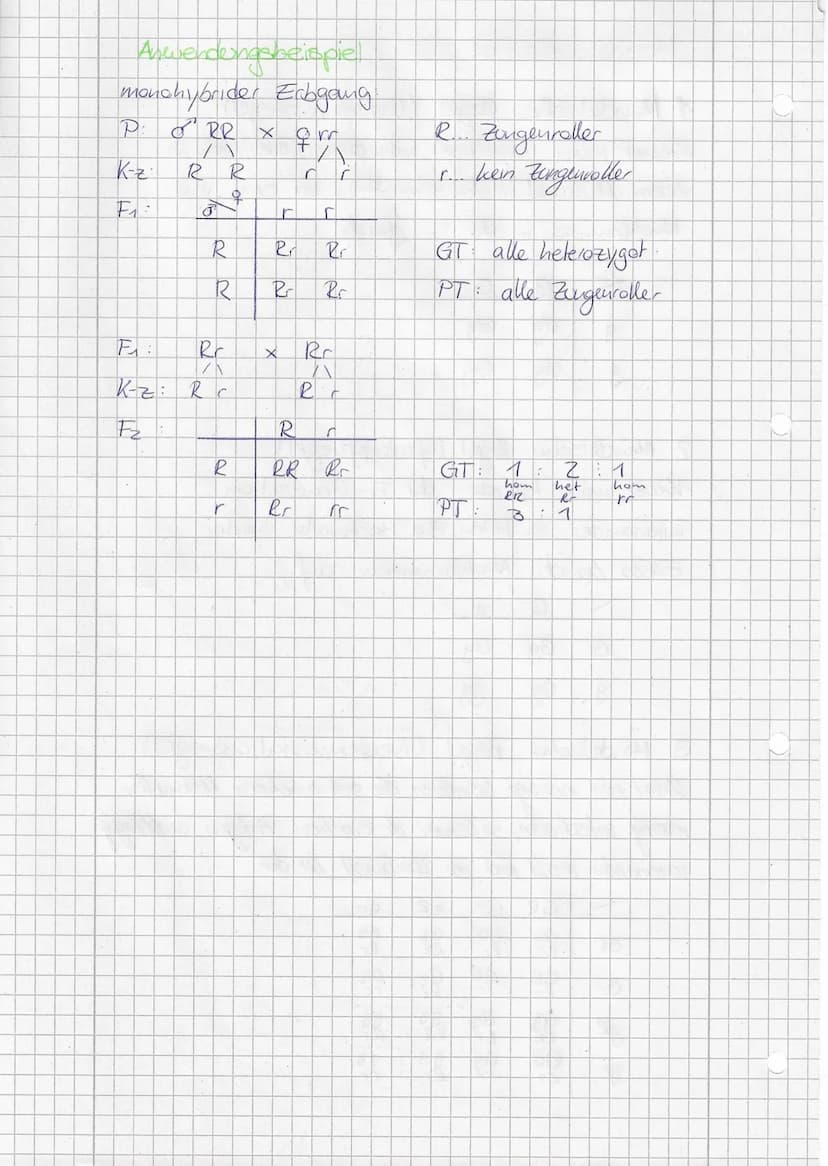 Anwendungsbeispiel
monohybrider Erbgang
P: ♂ RR × ♀ rr R... Zungenroller
K-z: R R r r r... kein Zungenroller
F1: ♂ ♀ r r
R Rr Rr GT: alle heterozygot.
R Rr Rr PT: alle Zungenroller
F1: Rr × Rr
K-z: R r R r
F2: R r
R RR Rr GT: 1 : 2 : 1
hom het hom
RR Rr rr
r Rr rr PT: 3 : 1